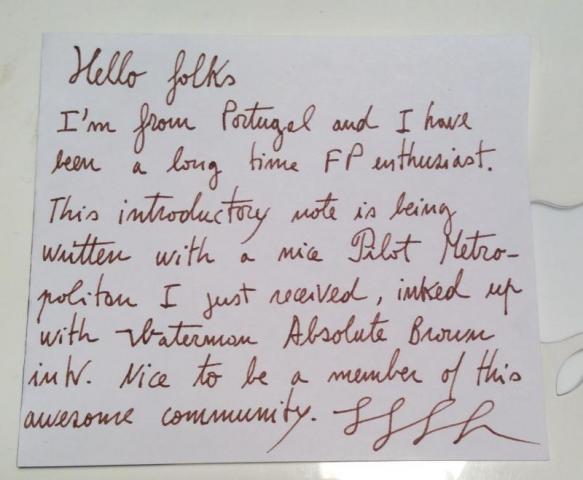 Hello folks
I'm from Portugal and I have
been a long time FP enthusiast.
This introductory note is being
written with a nice Pilot Metro-
politan I just received, inked up
with Waterman Absolute Brown
ink. Nice to be a member of this
awesome community.